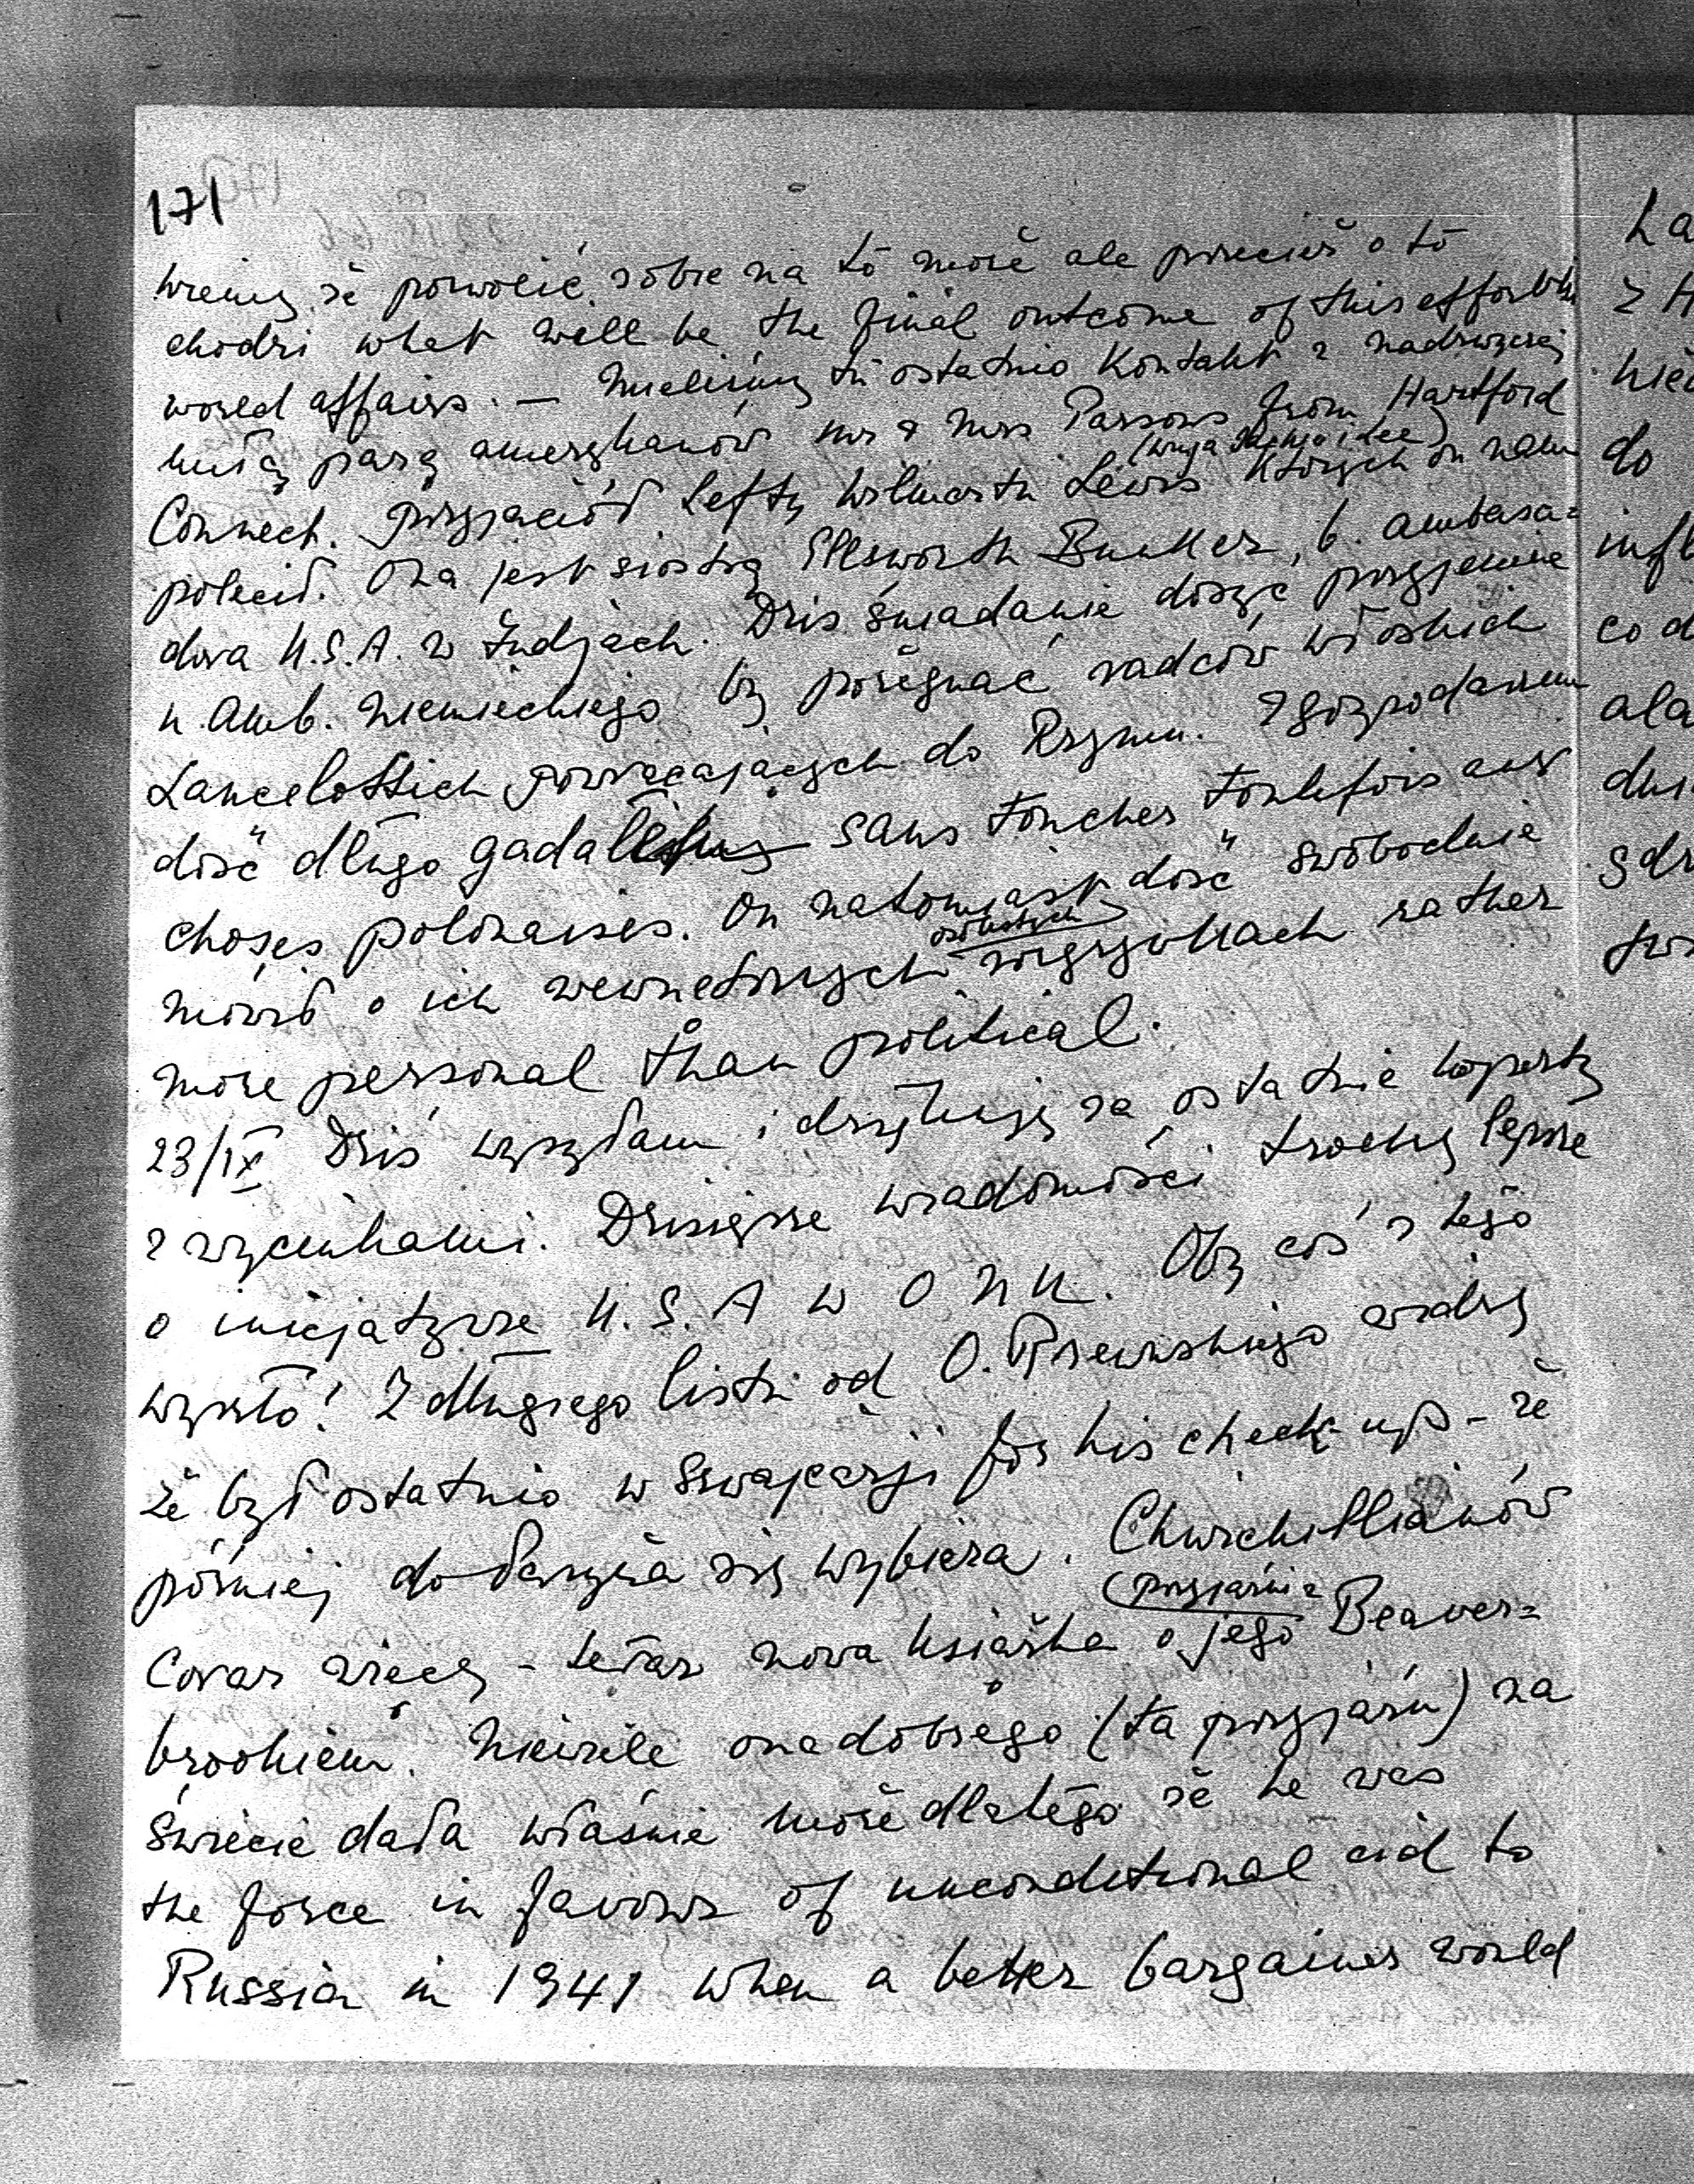 171
wiemy że pozwolić sobie na to może ale przecież o to
chodzi what will be the final outcome of this effort in
world affairs. — Mieliśmy tu ostatnio kontakt z nadzwyczaj
miłą parą amerykanów Mr & Mrs Parsons from Hartford
Connect. przyjaciół Lefty Wilmarth Lewis (wuja i Lee) których on nam
polecił. Ona jest siostrą Elsworth Bunker, b. ambasa=
dora U.S.A. w Indjach. Dziś śniadanie dosyć przyjemne
u Amb. Niemieckiego by pożegnać radców włoskich
Lancelottich powracających do Rzymu. Z gospodarzem
dość długo gadaliśmy sans toucher toutefois aux
choses polonaises. On natomiast dość swobodnie
mówił o ich wewnętrznych osobistych rozgrywkach rather
more personal than political.
23/IX Dziś wysyłam i dziękuję za ostatnie koperty
z wycinkami. Dzisiejsze wiadomości trochę lepsze
o inicjatywie U.S.A w O N U. Oby coś z tego
wyszło! Z długiego listu od O. Rzewuskiego widzę
że był ostatnio w Szwajcarji for his check-up - że
później do Paryża się wybiera. Churchillianów
coraz więcej - teraz nowa książka o jego (przyjaźni z Beaver=
brookiem. Niewiele ona dobrego (ta przyjaźń) na
świecie dała właśnie może dlatego że he was
the force in favour of unconditional aid to
Russia in 1941 when a better bargainer would
La
z H
nie
do
infl
co d
ala
du
gdz